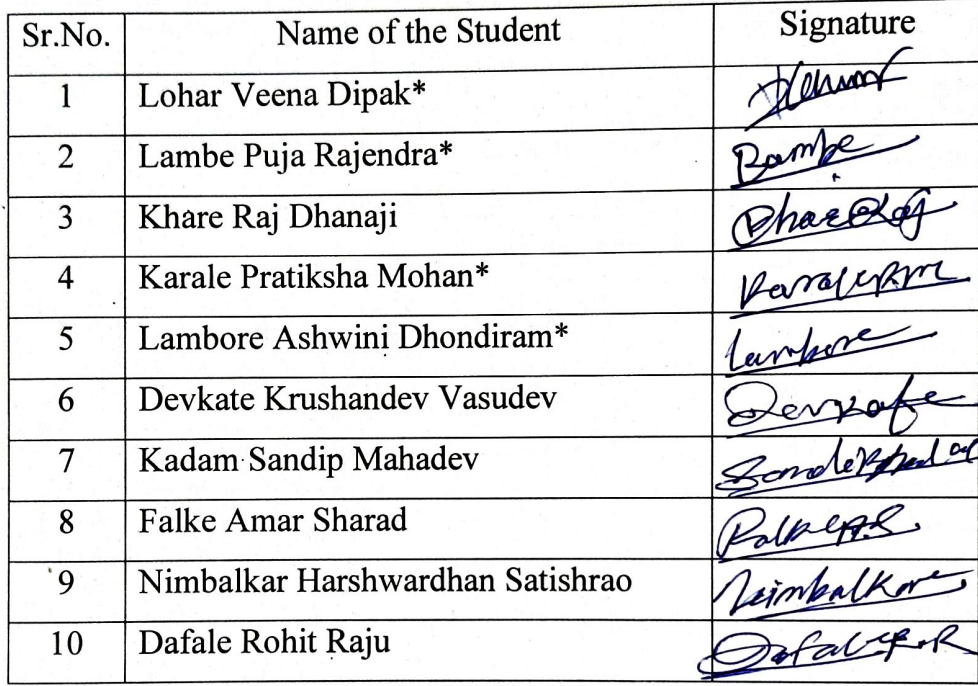 Sr.No. Name of the Student Signature
1 Lohar Veena Dipak*
2 Lambe Puja Rajendra*
3 Khare Raj Dhanaji
4 Karale Pratiksha Mohan*
5 Lambore Ashwini Dhondiram* Lambore
6 Devkate Krushandev Vasudev Devkate
7 Kadam Sandip Mahadev
8 Falke Amar Sharad
9 Nimbalkar Harshwardhan Satishrao Nimbalkar
10 Dafale Rohit Raju